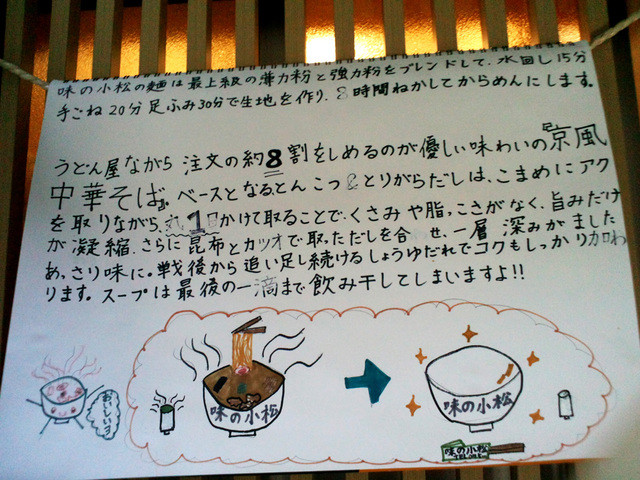 味の小松の麺は最上級の薄力粉と強力粉をブレンドして、水回し15分
手ごね20分足ふみ30分で生地を作り、8時間ねかしてからめんにします。
うどん屋ながら注文の約8割をしめるのが優しい味わいの『京風
中華そば』。ベースとなるとんこつとりがらだしは、こまめにアク
を取りながら、丸1日かけて取ることで、くさみや脂っこさがなく、旨みだけ
が凝縮。さらに昆布とカツオで取っただしを合せ、一層深みがました
あっさり味に。戦後から追い足し続けるしょうゆだれでコクもしっかり加わ
ります。スープは最後の一滴まで飲み干してしまいますよ!!
おいしいす
味の小松
味の小松
味の小松